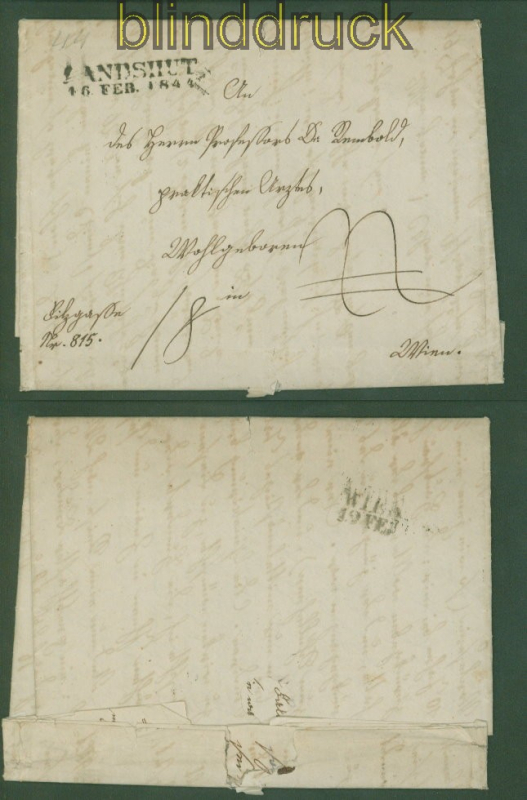 blinddruck
LANDSHUT
16. FEB. 1844
An
des Herrn Professors Dr. Rembold,
praktischen Arztes,
Wohlgeboren
in
18
Nr. 815.
Wien.
WIEN
19. FEB